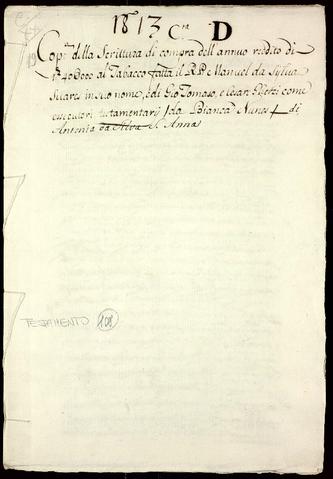 1813 Cn D
Cop.ª della Scrittura di compra dell'annuo reddito di
1740000 al Tabacco fatta il R.P.e Manuel da Sylva
Suares in suo nome, e di Gio Tomaso, e Cesare come
esecutori testamentarij da Bianca Nunes di
Antonia da Silva S. Anna
TESTAMENTO 108